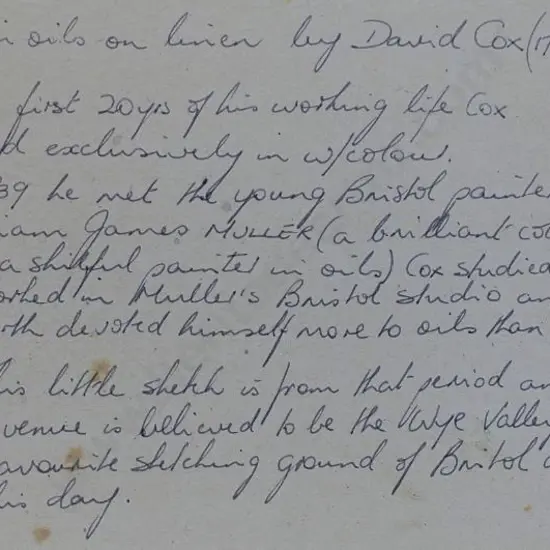 in oils on linen by David Cox (17
first 20yrs of his working life Cox
d exclusively in w/colour.
39 he met the young Bristol painter
liam James MULLER (a brilliant col
a skilful painter in oils) Cox studied
orked in Muller's Bristol studio an
rth devoted himself more to oils than
his little sketch is from that period an
venue is believed to be the Wye Valley
avourite sketching ground of Bristol a
his day.